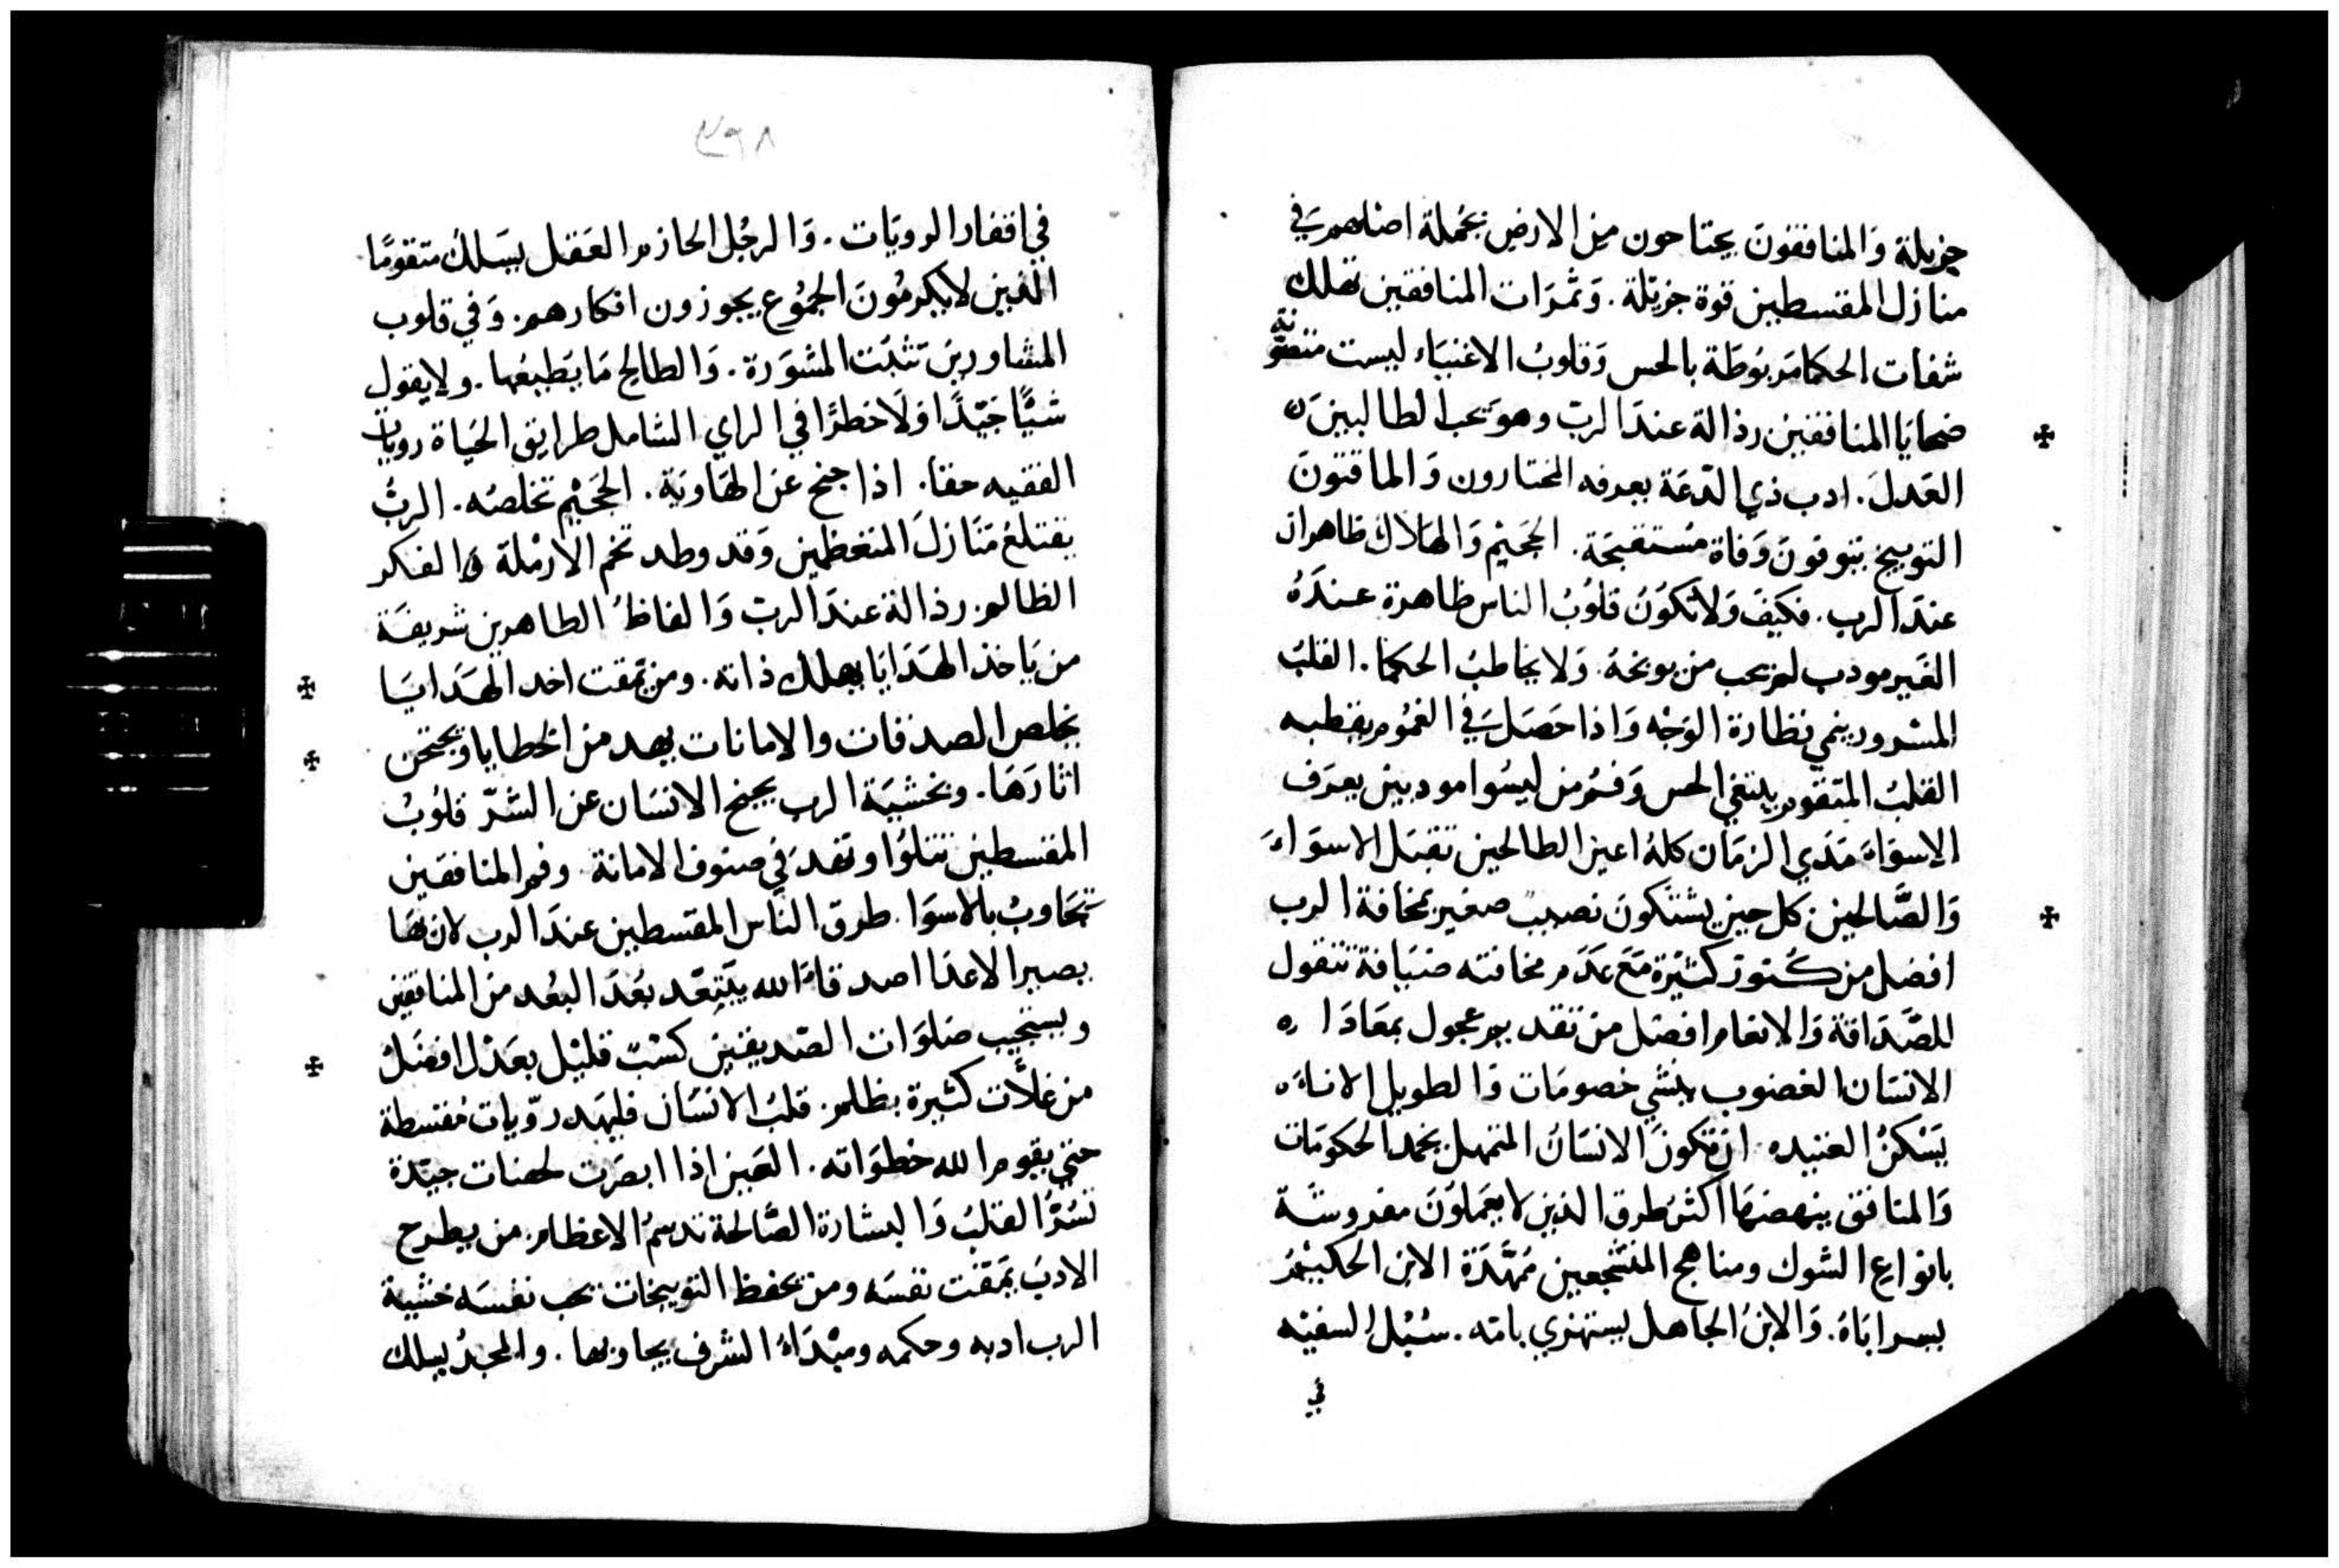 جزيلة وَالمنافقونَ يجتاحون من الارض بجُملة اصلهم في
منازل المقسطين قوة جزيلة. وَثمرَات المنافقين تهلك
شفات الحكما مَربوُطَة بالحس وَقلوبُ الاغنيَاء ليست
ضحايَا المنافقين رذالة عندَ الربّ وهوَ يحب الطالبينَ
العَدلَ. ادب ذي الدّعَة يعرفه المختارون وَالماقتونَ
التوبيخ يتوفونَ وَفاة مُستقبحَة. الجَحيْم وَالهَلاك ظاهران
عندَ الرب. فكيفَ وَلا تكوُنَ قلوُبُ الناس ظاهرة عندَهُ
الغَير مودب لم يحب من يوبخهُ. وَلا يخاطبُ الحكما. القلبُ
المسْرور ينمي نظارة الوَجْه وَاذا حَصَلَ في الغمُوم يقطبه
القلبُ المتقوم يبتغي الحس وَفمُ من ليسُوا مودبين يعرَف
الاسوَاءَ مَدَي الزمَان كلهُ اعين الطالحين تقبَل الاسوَاءَ
وَالصَّالحين كل حين يسْتكونَ نصيبٌ صغير بمخافة الرب
افضل من كنُوز كثيْرة مَعَ عَدَم مخافته ضيَافة بتقول
للصَّدَاقة وَالانعام افضل من تقديم عجول بمعَادَاه
الانسَان الغضوب ينشي خصومَات وَالطويل الاناءَه
يَسْكنُ العتيده ان تكونَ الانسَانُ المتمهل يخمد الحكومَات
وَالمنافق ينهضهَا اكثرَ طرق الذين لا يعمَلونَ مفروشَة
بانوَاع الشوك ومناهج المنتجعين مُمَهَّدَة الابن الحكيْمُ
يسر ابَاهُ. وَالابنُ الجاهل يستهزي بامّه. سُبُل السفيْه
في
٢٩٨
في اقفار الرويَات. وَالرجُل الحازم العَقل يسَلكُ متقومًا
الذين لا يكرمُونَ الجمُوع يجوزون افكارهم. وَفي قلوب
المشاورين تثبَت المشوَرة. وَالطالح مَا يَطيعُها. ولا يقول
شيًّا جَيّدًا وَلَا خطرًا في الراي الشامل طرايق الحيَاة رويات
الفقيه حقا. اذا جنح عَن الهَاويَة. الجَحيْم تخلصُه. الربُّ
يقتلعُ مَنَازلَ المتعَظمين وَقد وطد تخم الارمْلة والفكر
الظالم رذالة عندَ الربّ وَالفاظُ الطاهرين شريفَة
من يَاخذ الهَدَايَا يهلك ذاته. ومن يَمقت اخد الهَدَايَا
يخلص الصدقات والامانات يهد من الخطايا ويمتحن
اثارَهَا. وبخشيَة الرب يجنح الانسَان عن الشرّ قلوُبُ
المقسطين تتلوُا وتهَدَ في صنوف الامانة وفم المنافقين
تجَاوبُ بالاسوَا. طرق الناس المقسطين عندَ الرب لان بهَا
يصير الاعدَا اصدقاءَ الله يبَتعّد بُعدَ البعُد من المنافقين
ويستجيب صَلوَات الصّديقين كسْبٌ قليْل بعَدْل افضَلُ
من غلاّت كثيرة بظلم. قلبُ الانسَان فليهَد روّيات مُقسطة
حتي يقوم الله خطوَاته. العَين اذا ابصَرَت لحضات جيّدة
تسُرُّ القلبُ وَالبشارة الصَّالحة تدسمُ الاعظام. من يطرح
الادبَ يَمقتُ نفسَه ومن يحفظ التوبيخات يحب نفسَه خشية
الرب ادبه وحكمه ومبْدَاءُ الشرف يجاوبها. والمجدُ يسلك